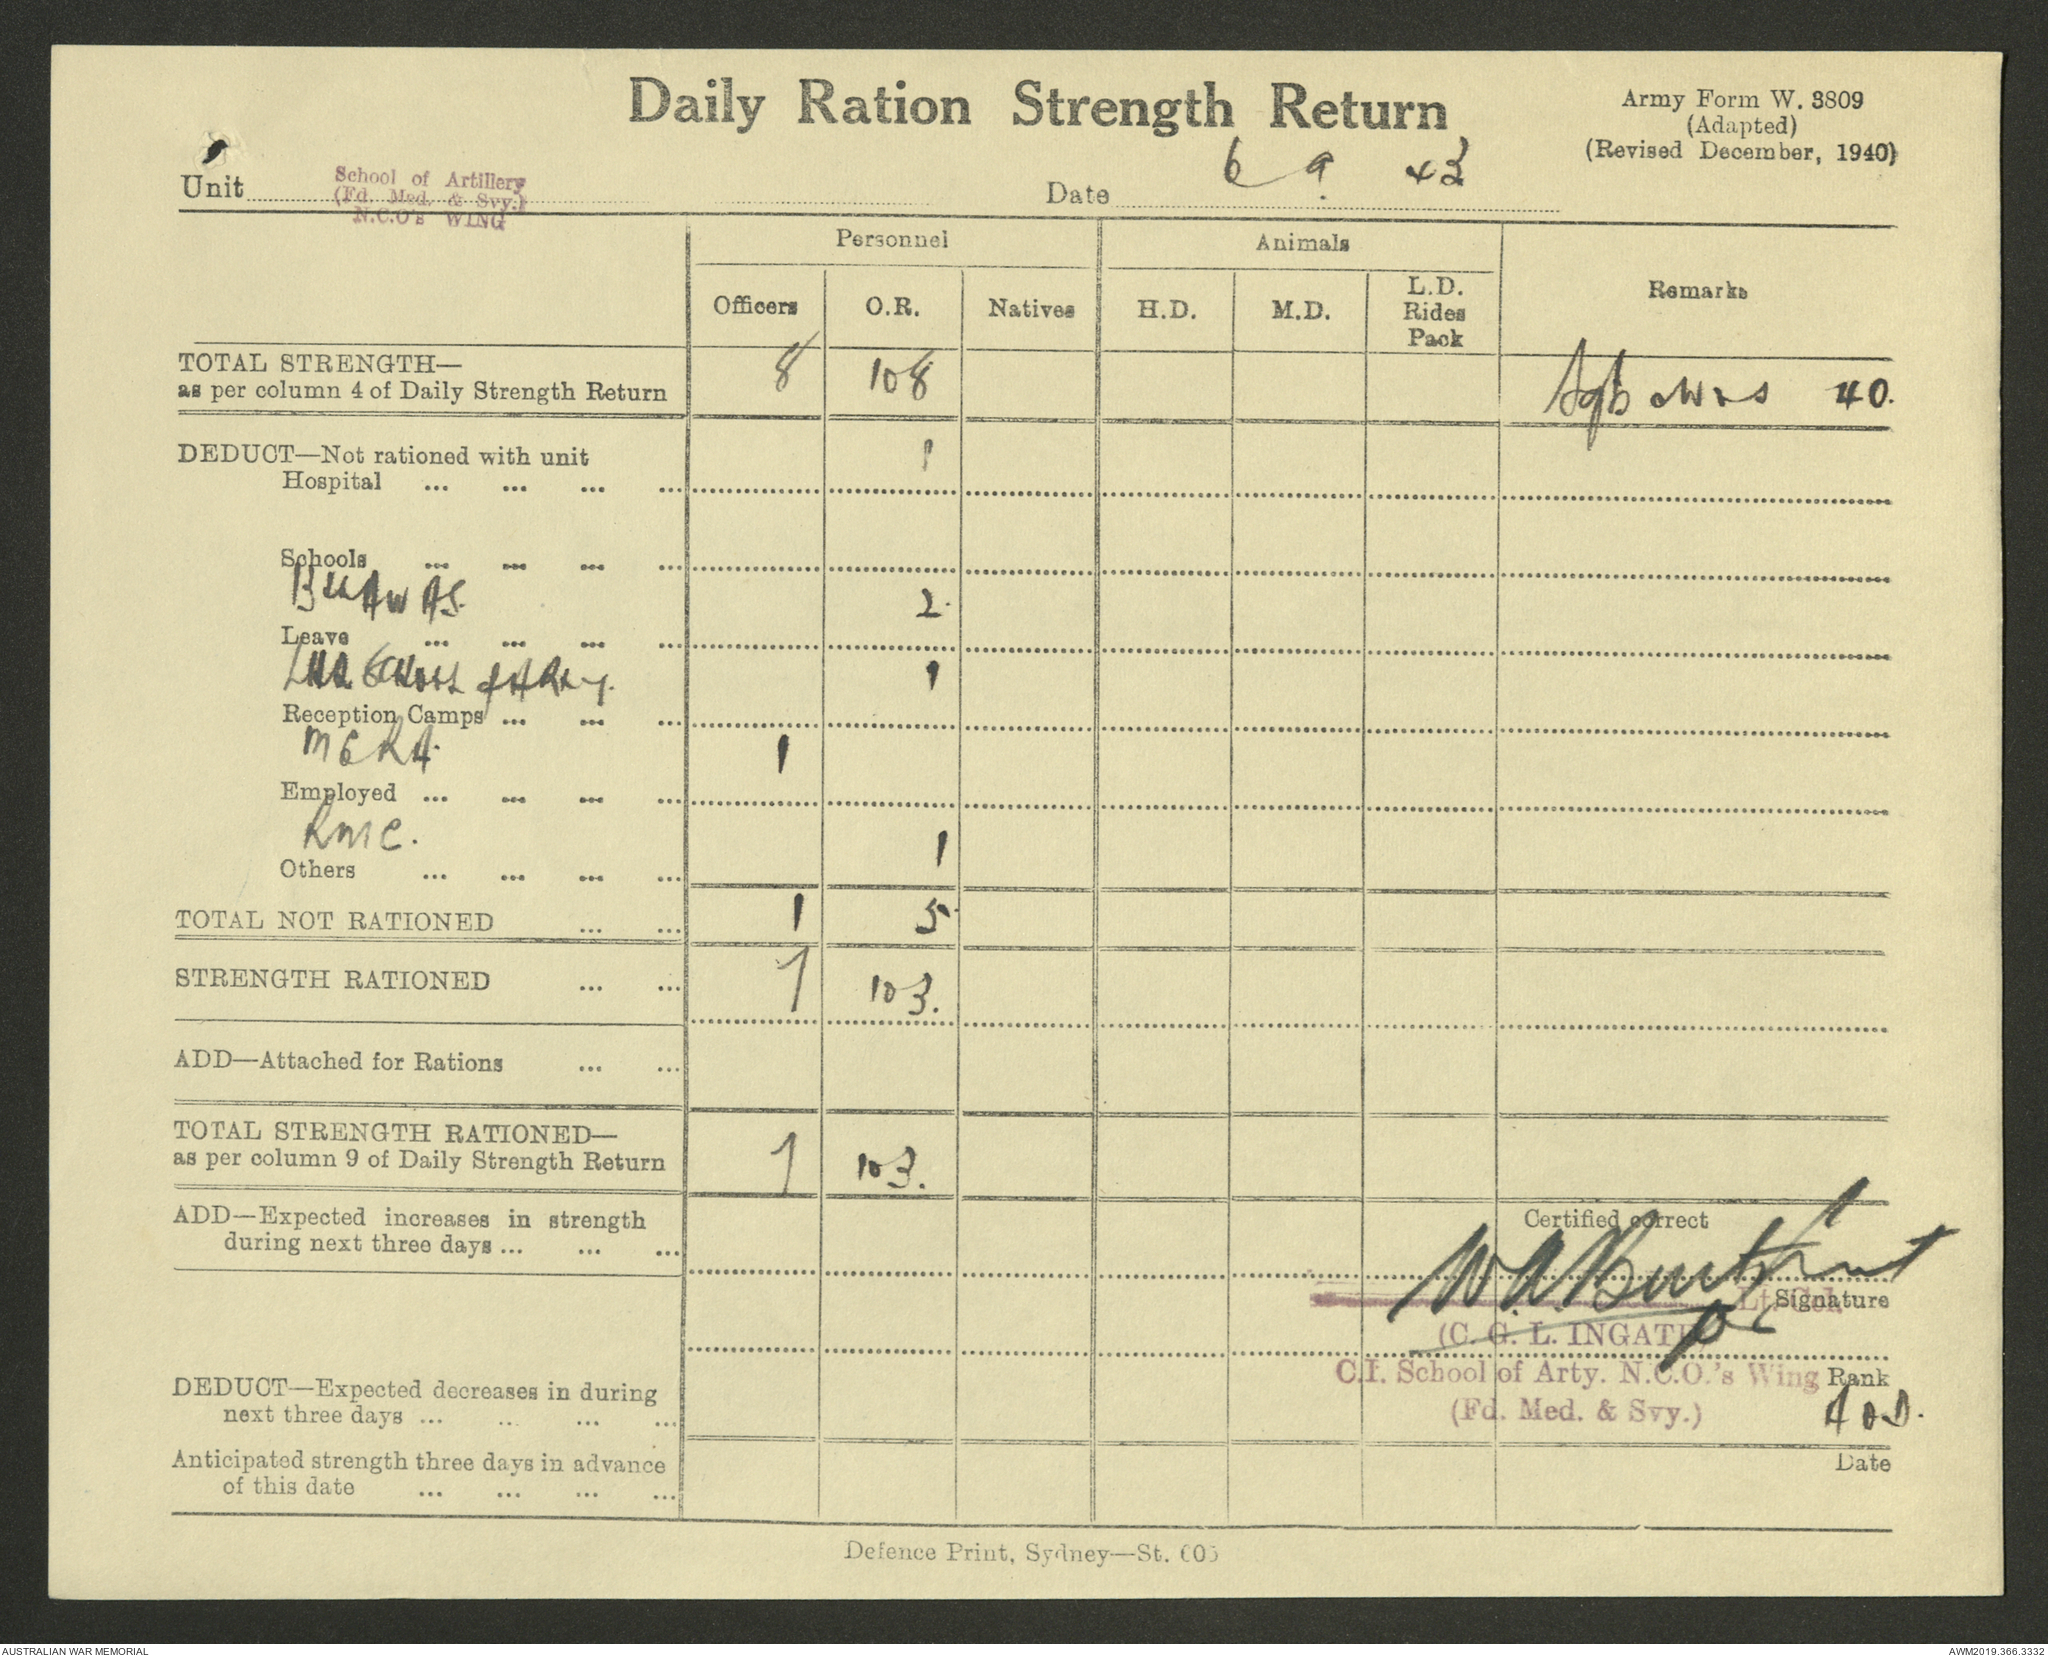 Daily Ration Strength Return
Army Form W. 3809
(Adapted)
(Revised December, 1940)
Unit School of Artillery
(Fd. Med. & Svy.)
N.C.O's WING
Date 6 9. 43
Personnel Animals Remarks
Officers O.R. Natives H.D. M.D. L.D. Rides Pack
TOTAL STRENGTH—
as per column 4 of Daily Strength Return 8 108 40.
DEDUCT—Not rationed with unit
Hospital ... ... ... ... 1
Schools ... ... ... ...
AWAS. 2.
Leave ... ... ... ...
School of Arty. 1
Reception Camps ... ... ...
1
Employed ... ... ... ...
RMC. 1
Others ... ... ... ...
TOTAL NOT RATIONED ... ... 1 5.
STRENGTH RATIONED ... ... 7 103.
ADD—Attached for Rations ... ...
TOTAL STRENGTH RATIONED—
as per column 9 of Daily Strength Return 7 103.
ADD—Expected increases in strength
during next three days ... ... ...
Certified correct
Signature
Lt. Col.
(C. G. L. INGATE)
C.I. School of Arty. N.C.O.'s Wing Rank
(Fd. Med. & Svy.)
DEDUCT—Expected decreases in during
next three days ... ... ... ...
Anticipated strength three days in advance
of this date ... ... ... ...
Date
Defence Print, Sydney—St. 605
AUSTRALIAN WAR MEMORIAL
AWM2019.366.3332